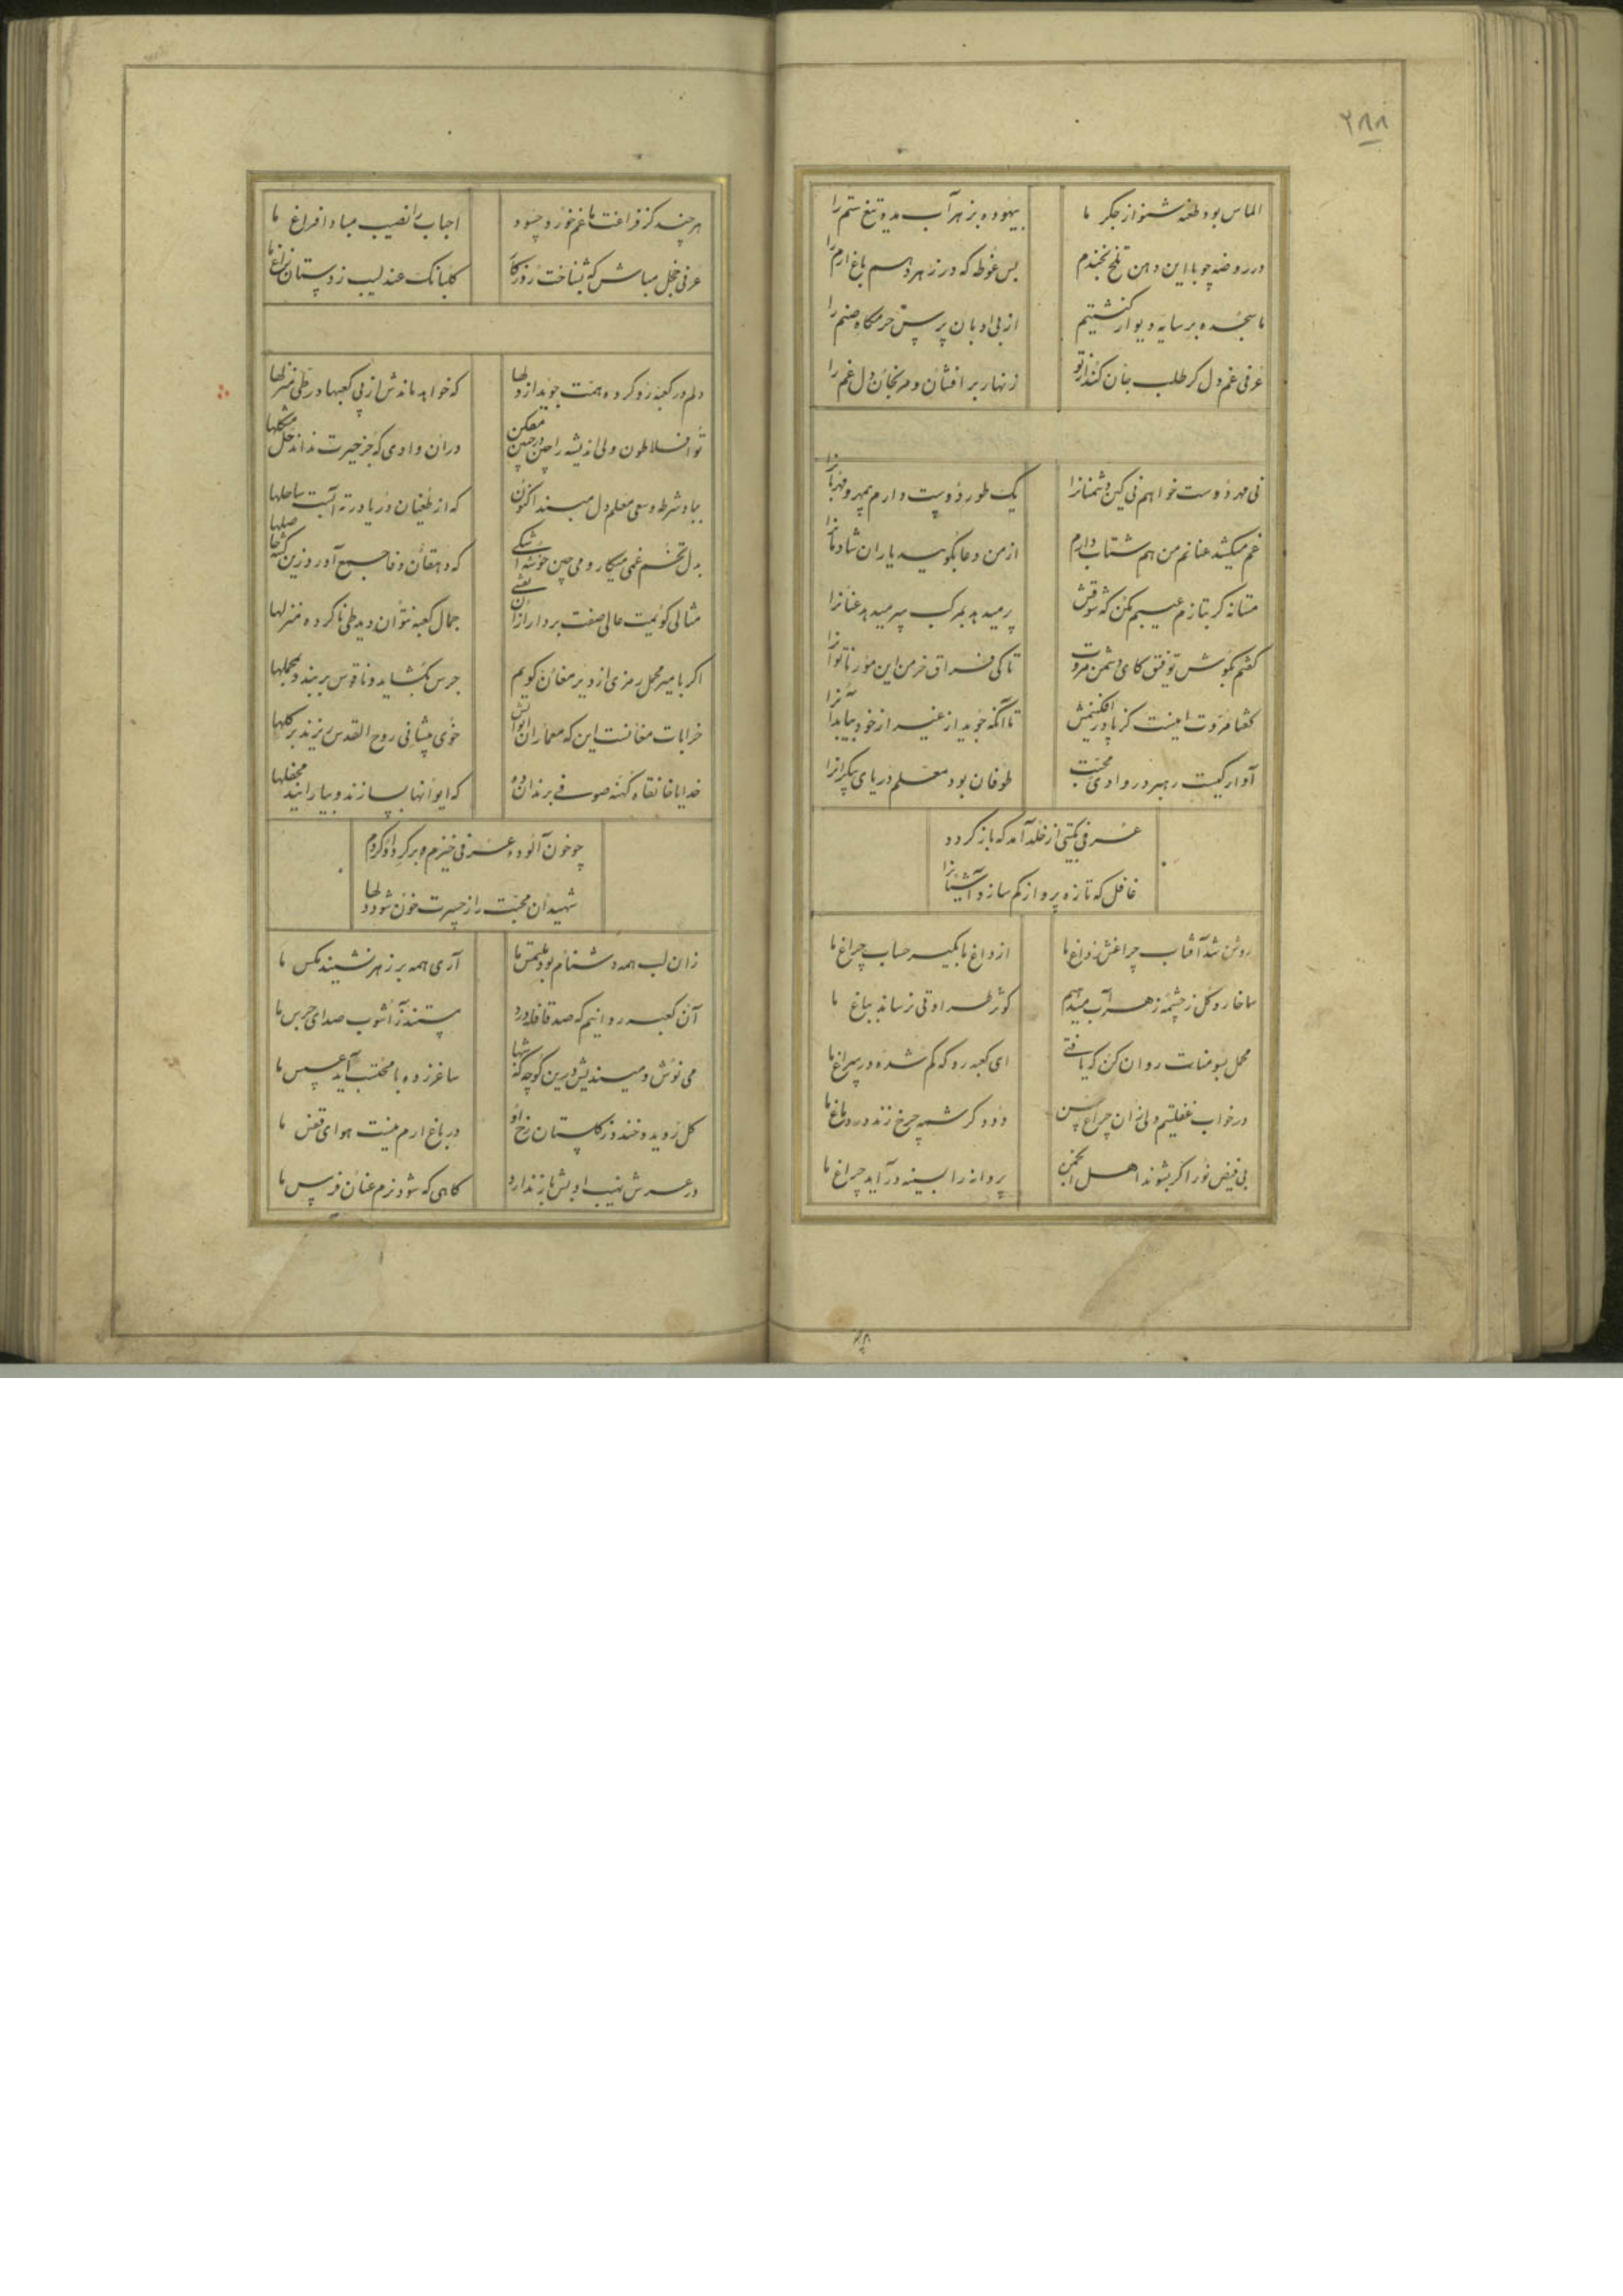 ۲۸۸
الماس بود طعنه شنو از جگر ما بیهوده بزهر آب مده تیغ ستم را
در روضه چو با این دهن تلخ بخندم بس غوطه که در زهر دهم باغ ارم را
ما سجده بر سایه دیوار کنشتیم از بی ادبان پرس حرمگاه صنم را
عرفی غم دل گر طلب جان کند از تو زنهار بر افشان و مرنجان دل غم را
نی مهر دوست خواهم نی کین دشمنانرا یک طور دوست دارم بیمهر و مهربانرا
غم میکشد عنانم من هم شتاب دارم از من دعا بگویید یاران شادمانرا
مستانه گر بتازم عیبم مکن که شوقش پر میدهد بمرکب سر میدهد عنانرا
گفتم بگوش توفیق کای دشمن مروت تا کی فراق خرمن این مور ناتوانرا
گفتا مروت اینست کز پا در افکنیمش تا آنکه جوید از غیر از خود بیابد آنرا
آوارگیست رهبر در وادی محبت طوفان بود معلم دریای بیکرانرا
عرفی بگشتی از خلد آمد که باز گردد
غافل که تازه پرواز گم سازد آشیانرا
روشن شد آفتاب چراغش ز داغ ما از داغ ما بگیر حساب چراغ ما
ما خار و گل ز چشمه زهر آب میدهیم کوثر طراوتی نرساند بباغ ما
محمل بسومنات روان کن که یافتی ای کعبه رو که گم شده در سراغ ما
در خواب غفلتیم ولی زان چراغ حسن دود کرشمه چرخ زند در دماغ ما
بی فیض نور اگر بشوند اهل انجمن پروانه را بسینه در آید چراغ ما
هر چند کز فراغت ما غم خورد چو دود احباب را نصیب مبادا فراغ ما
عرفی خجل مباش که نشناخت روزگار گلبانگ عندلیب ز دستان زاغ ما
دلم در کعبه رو کرده همت جوید از دلها که خواهد ماندنش از پی کعبها در طی منزلها
تو افلاطون ولی اندیشه را چین در جبین مفکن در آن وادی که جز حیرت نداند حل مشکلها
بباد شرطه و سعی معلم دل مبند اکنون که از طغیان دریا در ته آبست ساحلها
بدل تخم غمی میکار و می چین خوشه اشکی که دهقان وفا جمع آورد زین کشتها حاصلها
مثالی گویمت عالی صفت بردار از آن نقشی جمال کعبه نتوان دید طی ناکرده منزلها
اگر با میر محمل رمزی از دیر مغان گویم جرس بگشاید و ناقوس بر بندد بمحملها
خرابات مغانست این که معماران ایوانش خوی پیشانی روح القدس ریزند بر گلها
خدایا خانقاه کهنه صوفی برندان ده که ایوانها بسازند و بیارایند محفلها
چو خون آلوده عرفی خیزم و بر گرد او گردم
شهیدان محبت را ز حسرت خون شود دلها
زان لب همه دشنام بود ملتمس ما آری همه بر زهر نشیند مگس ما
آن کعبه روانیم که صد قافله درد مستند ز آشوب صدای جرس ما
می نوش و میندیش درین کوچه که شبها ساغر زده با محتسب آید عسس ما
گل روید و خندد ز گلستان رخ او در باغ ارم نیست هوای قفس ما
در عرش نهیب ادبش باز ندارد گاهی که شود نرم عنان فرس ما